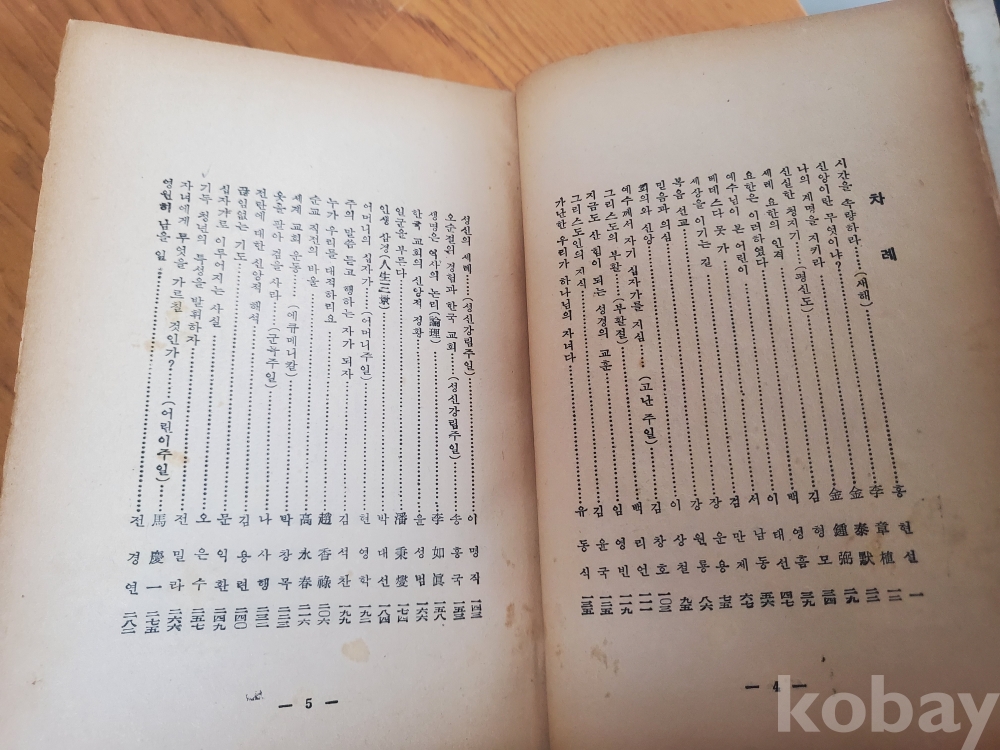 차례
시간을 측량하라……(새해) 홍현설 一
신앙이란 무엇이냐? 李章植 一二
나의 계명을 지키라 金泰默 二二
신실한 청지기……(평신도) 金鍾弼 二九
세례 요한의 인격 김형모 三四
요한은 이러하였다 백영흠 三九
예수님이 본 어린이 이태선 四七
베데스다 못 가 서남동 五六
세상을 이기는 길 만제 六七
복음 선교 장운용 七五
믿음과 의심 강원룡 八六
회의와 신앙 이상철 九五
예수께서 자기 십자가를 지심……(고난 주일) 김창호 一〇三
그리스도의 부활……(부활절) 백리언 一一一
지금도 산 힘이 되는 성경의 교훈 임영빈 一一九
그리스도인의 지식 김윤국 一二五
가난한 우리가 하나님의 자녀다 유동식 一三五
— 4 —
성신의 세례……(성신강림주일) 이명직 一四三
오순절의 경험과 한국 교회……(성신강림주일) 송홍국 一五三
생명은 역사의 논리(論理) 李如眞 一五八
한국 교회의 신앙적 정황 윤성범 一六六
일군을 부른다 潘秉燮 一七四
인생 삼경(人生三景) 박대선 一八四
어머니의 십자가……(어머니주일) 현영학 一九二
주의 말씀 듣고 행하는 자가 되자 김석찬 一九九
누가 우리를 대적하리요 趙香祿 二〇六
순교 직전의 바울 高永春 二一六
세계 교회 운동……(에큐메니칼) 박창목 二二三
옷을 팔아 검을 사라……(군목주일) 나사행 二三二
전란에 대한 신앙적 해석 김용련 二四〇
끊임없는 기도 문익환 二四九
십자가로 이루어지는 사실 오은수 二五七
기독 청년의 특성을 발휘하자 전밀라 二六六
자녀에게 무엇을 가르칠 것인가?……(어린이주일) 馬慶一 二七五
영원히 남을 일 전경연 二八二
— 5 —
kobay